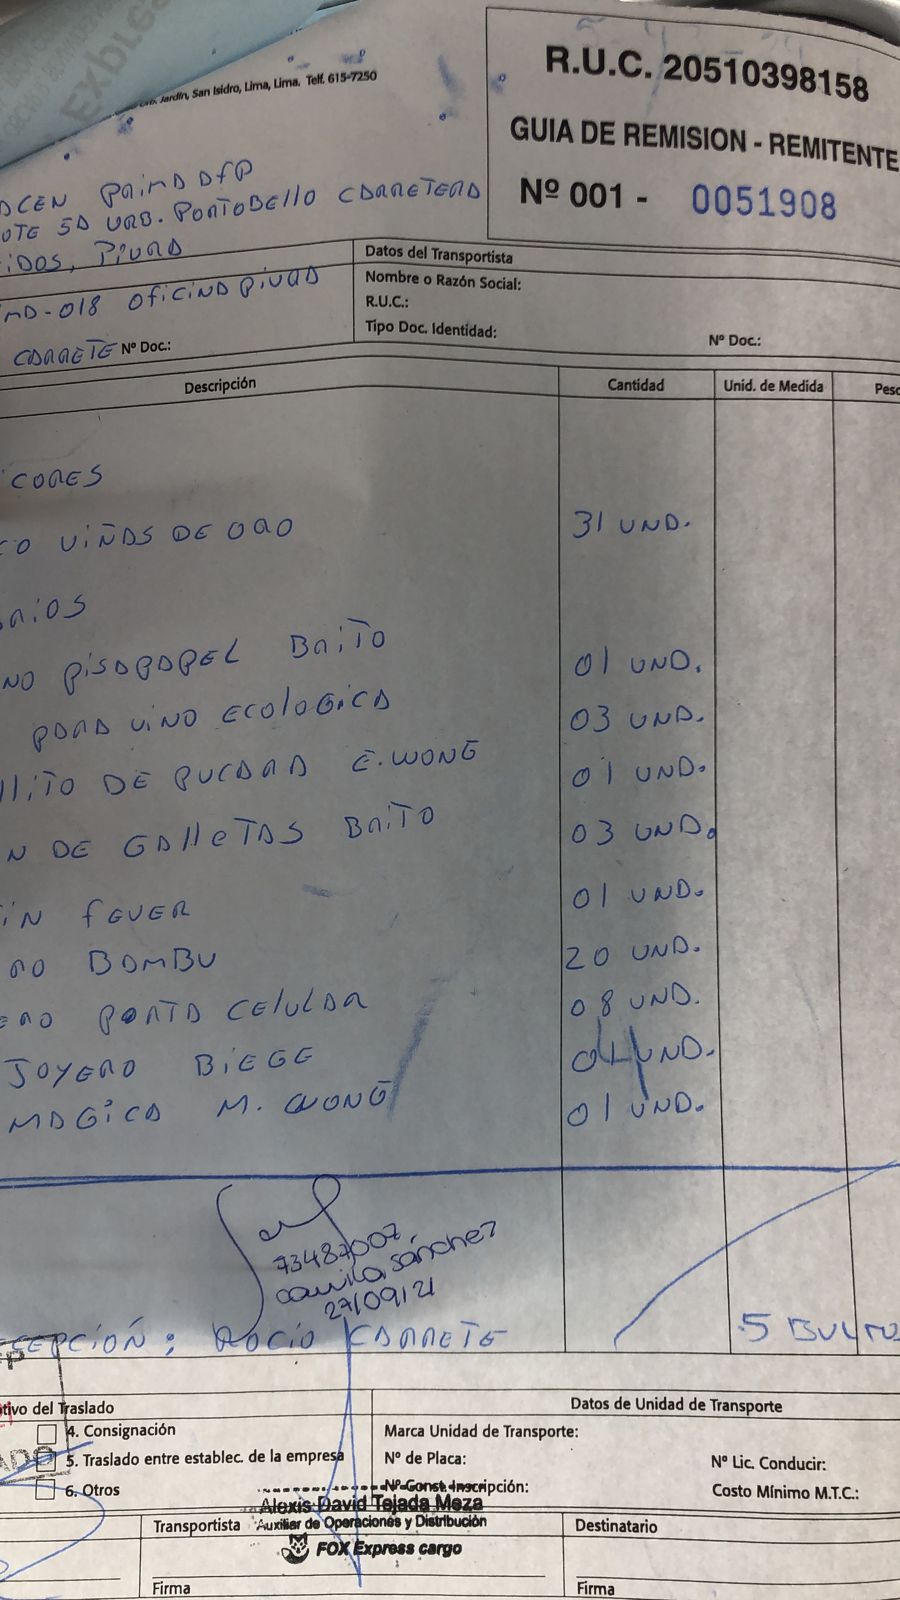 Expre
Jardín, San Isidro, Lima, Lima. Telf. 615-7250
R.U.C. 20510398158
GUIA DE REMISION - REMITENTE
Nº 001 - 0051908
CEN PRIMA AFP
OTE 5A URB. PORTOBELLO CARRETERA
IDOS, PIURA
MA-018 OFICINA PIURA
CARRETE Nº Doc.:
Datos del Transportista
Nombre o Razón Social:
R.U.C.:
Tipo Doc. Identidad:
Nº Doc.:
Descripción Cantidad Unid. de Medida Peso
CORES
CO VIÑAS DE ORO 31 UND.
ARIOS
NO PISAPAPEL BRITO 01 UND.
PARA VINO ECOLOGICA 03 UND.
LLITO DE PUCARA E. WONG 01 UND.
N DE GALLETAS BRITO 03 UND.
IN FEVER 01 UND.
RO BAMBU 20 UND.
ERO PORTA CELULAR 08 UND.
JOYERO BIEGE 01 UND.
MAGICA M. WONG 01 UND.
73487007
Camila Sánchez
27/09/21
CEPCIÓN: ROCIO CARRETE
5 BULTO
tivo del Traslado
Datos de Unidad de Transporte
4. Consignación
5. Traslado entre establec. de la empresa
6. Otros
Marca Unidad de Transporte:
Nº de Placa:
Nº Lic. Conducir:
Nº Const. Inscripción:
Costo Mínimo M.T.C.:
Alexis David Tejada Meza
Auxiliar de Operaciones y Distribución
FOX Express cargo
Transportista
Destinatario
Firma
Firma